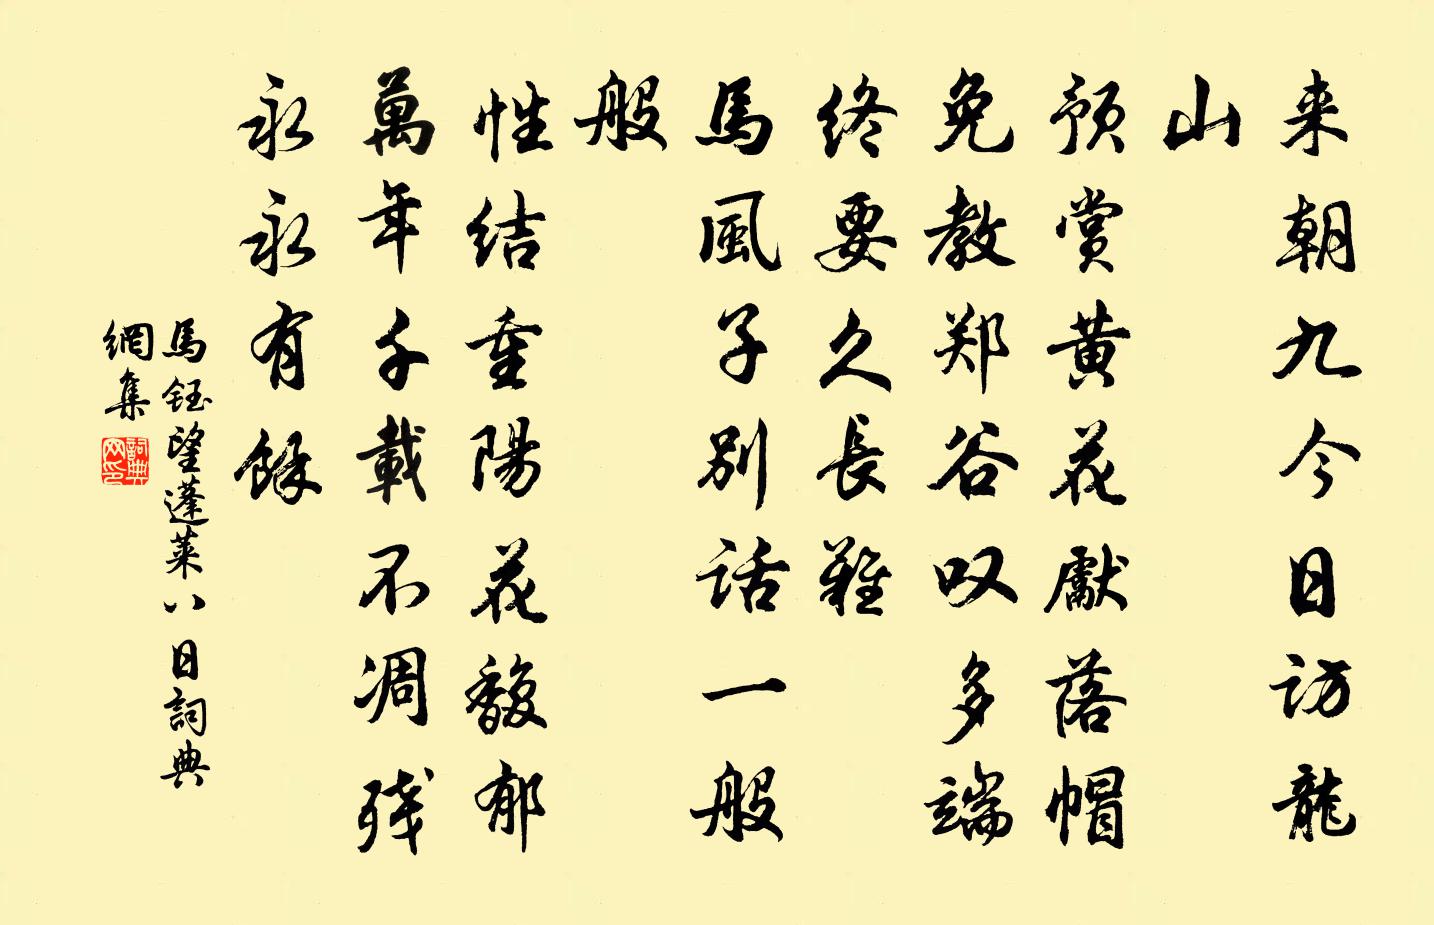 来朝九今日访龍
山
预赏黄花獻落帽
免教郑谷叹多端
终要久長難
馬風子别话一般
般
性结重陽花馥郁
萬年千載不凋残
永永有餘
馬鈺望蓬莱八日詞典
網集
詞典
网印